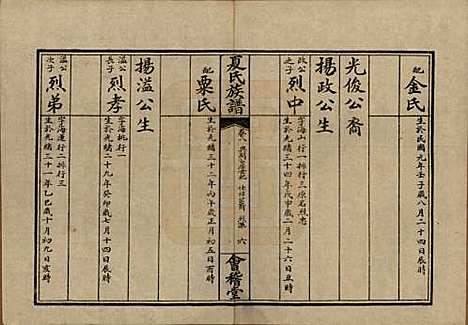 配
金氏
生於民國元年壬子歲八月二十四日
光俊公裔
揚政公生
政公
之子
烈中
字海山行一排行三原名烈忠
生於光緒三十四年戊申歲二月二十六日丑時
夏氏族譜
六
會稽堂
配
粟氏
生於光緒三十二年丙午歲
月初五日酉時
揚溢公生
溢公
長子
烈孝
字海桃行一
生於光緒二十九年癸卯歲七月十四日辰時
溢公
次子
烈弟
字海蓮行二排行三
生於光緒三十一年乙巳歲十月初九日亥時